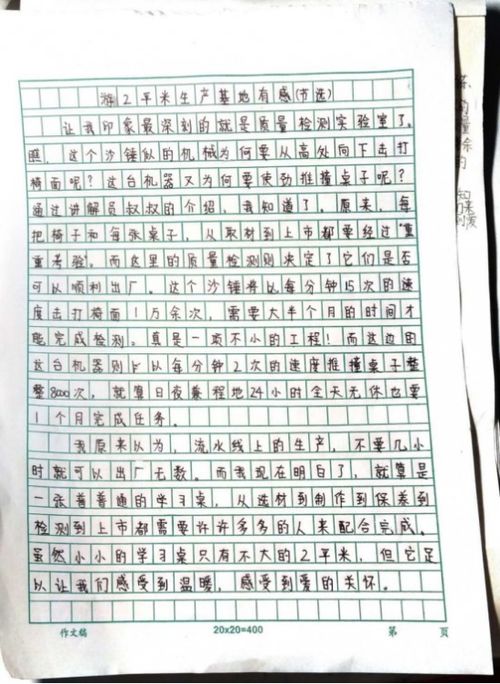 游2平米生产基地有感(节选)
让我印象最深刻的就是质量检测实验室了。
瞧,这个沙锤似的机械为何要从高处向下击打
椅面呢?这台机器又为何要使劲推撞桌子呢?
通过讲解员叔叔的介绍,我知道了。原来,每
把椅子和每张桌子,从取材到上市都要经过“重
重考验”。而这里的质量检测则决定了它们是否
可以顺利出厂。这个沙锤将以每分钟15次的速
度击打椅面1万余次,需要大半个月的时间才
能完成检测。真是一项不小的工程!而这边的
这台机器则以每分钟2次的速度推撞桌子整
整8000次,就算日夜兼程地24小时全天无休也要
1个月完成任务。
我原来以为,流水线上的生产,不要几小
时就可以出厂无数。而我现在明白了,就算是
一张普普通的学习桌,从选材到制作到保养到
检测到上市都需要许许多多的人来配合完成。
虽然小小的学习桌只有不大的2平米,但它足
以让我们感受到温暖,感受到爱的关怀。
作文稿 20x20=400 第 页